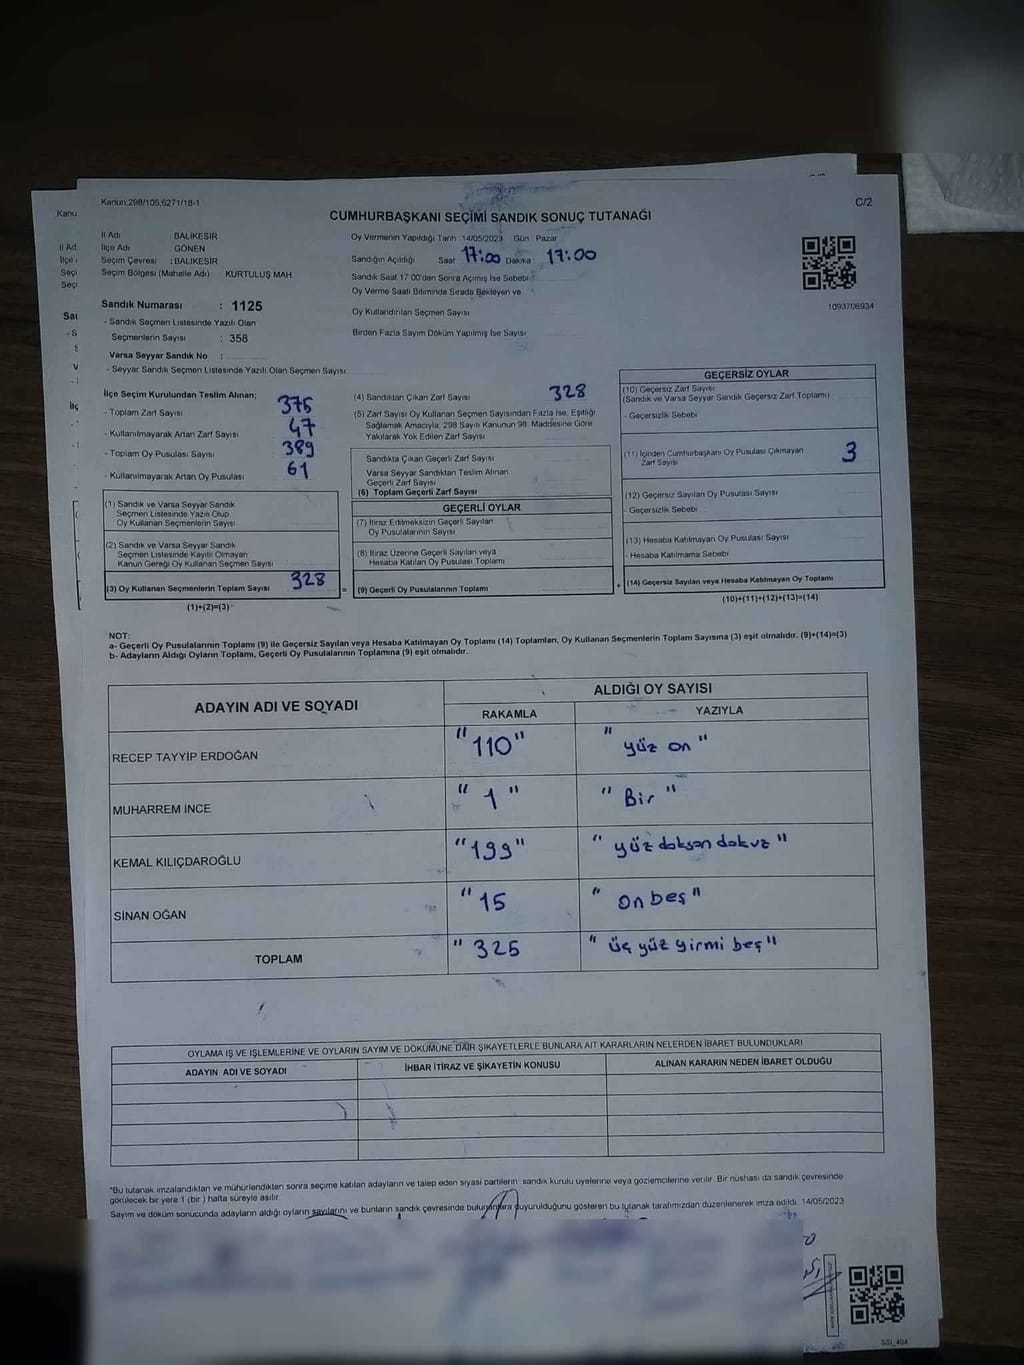 Kanun;298/105,6271/18-1
C/2
CUMHURBAŞKANI SEÇİMİ SANDIK SONUÇ TUTANAĞI
İl Adı : BALIKESİR
İlçe Adı : GÖNEN
Seçim Çevresi : BALIKESİR
Seçim Bölgesi (Mahalle Adı) KURTULUŞ MAH.
Oy Vermenin Yapıldığı Tarih 14/05/2023 Gün : Pazar
Sandığın Açıldığı Saat 17:00 Dakika : 17:00
Sandık Saat 17.00'den Sonra Açımış İse Sebebi :
Oy Verme Saati Bitiminde Sırada Bekleyen ve
Oy Kullandırılan Seçmen Sayısı
Birden Fazla Sayım Döküm Yapılmış İse Sayısı
1093706934
Sandık Numarası : 1125
- Sandık Seçmen Listesinde Yazılı Olan
Seçmenlerin Sayısı : 358
Varsa Seyyar Sandık No :
- Seyyar Sandık Seçmen Listesinde Yazılı Olan Seçmen Sayısı
İlçe Seçim Kurulundan Teslim Alınan;
- Toplam Zarf Sayısı 375
- Kullanılmayarak Artan Zarf Sayısı 47
- Toplam Oy Pusulası Sayısı 389
- Kullanılmayarak Artan Oy Pusulası 61
(1) Sandık ve Varsa Seyyar Sandık
Seçmen Listesinde Yazılı Olup
Oy Kullanan Seçmenlerin Sayısı
(2) Sandık ve Varsa Seyyar Sandık
Seçmen Listesinde Kayıtlı Olmayan
Kanun Gereği Oy Kullanan Seçmen Sayısı
(3) Oy Kullanan Seçmenlerin Toplam Sayısı 328
(1)+(2)=(3)
(4) Sandıktan Çıkan Zarf Sayısı 328
(5) Zarf Sayısı Oy Kullanan Seçmen Sayısından Fazla İse, Eşitliği
Sağlamak Amacıyla, 298 Sayılı Kanunun 98. Maddesine Göre
Yakılarak Yok Edilen Zarf Sayısı
Sandıkta Çıkan Geçerli Zarf Sayısı
Varsa Seyyar Sandıktan Teslim Alınan
Geçerli Zarf Sayısı
(6) Toplam Geçerli Zarf Sayısı
GEÇERLİ OYLAR
(7) İtiraz Edilmeksizin Geçerli Sayılan
Oy Pusulalarının Sayısı
(8) İtiraz Üzerine Geçerli Sayılan veya
Hesaba Katılan Oy Pusulası Toplamı
= (9) Geçerli Oy Pusulalarının Toplamı
GEÇERSİZ OYLAR
(10) Geçersiz Zarf Sayısı
(Sandık ve Varsa Seyyar Sandık Geçersiz Zarf Toplamı)
- Geçersizlik Sebebi
(11) İçinden Cumhurbaşkanı Oy Pusulası Çıkmayan
Zarf Sayısı 3
(12) Geçersiz Sayılan Oy Pusulası Sayısı
- Geçersizlik Sebebi
(13) Hesaba Katılmayan Oy Pusulası Sayısı
- Hesaba Katılmama Sebebi
+ (14) Geçersiz Sayılan veya Hesaba Katılmayan Oy Toplamı
(10)+(11)+(12)+(13)=(14)
NOT:
a- Geçerli Oy Pusulalarının Toplamı (9) ile Geçersiz Sayılan veya Hesaba Katılmayan Oy Toplamı (14) Toplamları, Oy Kullanan Seçmenlerin Toplam Sayısına (3) eşit olmalıdır. (9)+(14)=(3)
b- Adayların Aldığı Oyların Toplamı, Geçerli Oy Pusulalarının Toplamına (9) eşit olmalıdır.
ADAYIN ADI VE SOYADI
ALDIĞI OY SAYISI
RAKAMLA YAZIYLA
RECEP TAYYİP ERDOĞAN "110" "yüz on"
MUHARREM İNCE "1" "Bir"
KEMAL KILIÇDAROĞLU "199" "yüz doksan dokuz"
SİNAN OĞAN "15 "on beş"
TOPLAM "325 "üç yüz yirmi beş"
OYLAMA İŞ VE İŞLEMLERİNE VE OYLARIN SAYIM VE DÖKÜMÜNE DAİR ŞİKAYETLERLE BUNLARA AİT KARARLARIN NELERDEN İBARET BULUNDUKLARI
ADAYIN ADI VE SOYADI İHBAR İTİRAZ VE ŞİKAYETİN KONUSU ALINAN KARARIN NEDEN İBARET OLDUĞU
*Bu tutanak imzalandıktan ve mühürlendikten sonra seçime katılan adayların ve talep eden siyasi partilerin sandık kurulu üyelerine veya gözlemcilerine verilir. Bir nüshası da sandık çevresinde
görülecek bir yere 1 (bir) hafta süreyle asılır.
Sayım ve döküm sonucunda adayların aldığı oyların sayılarını ve bunların sandık çevresinde bulunanlara duyurulduğunu gösteren bu tutanak tarafımızdan düzenlenerek imza edildi. 14/05/2023